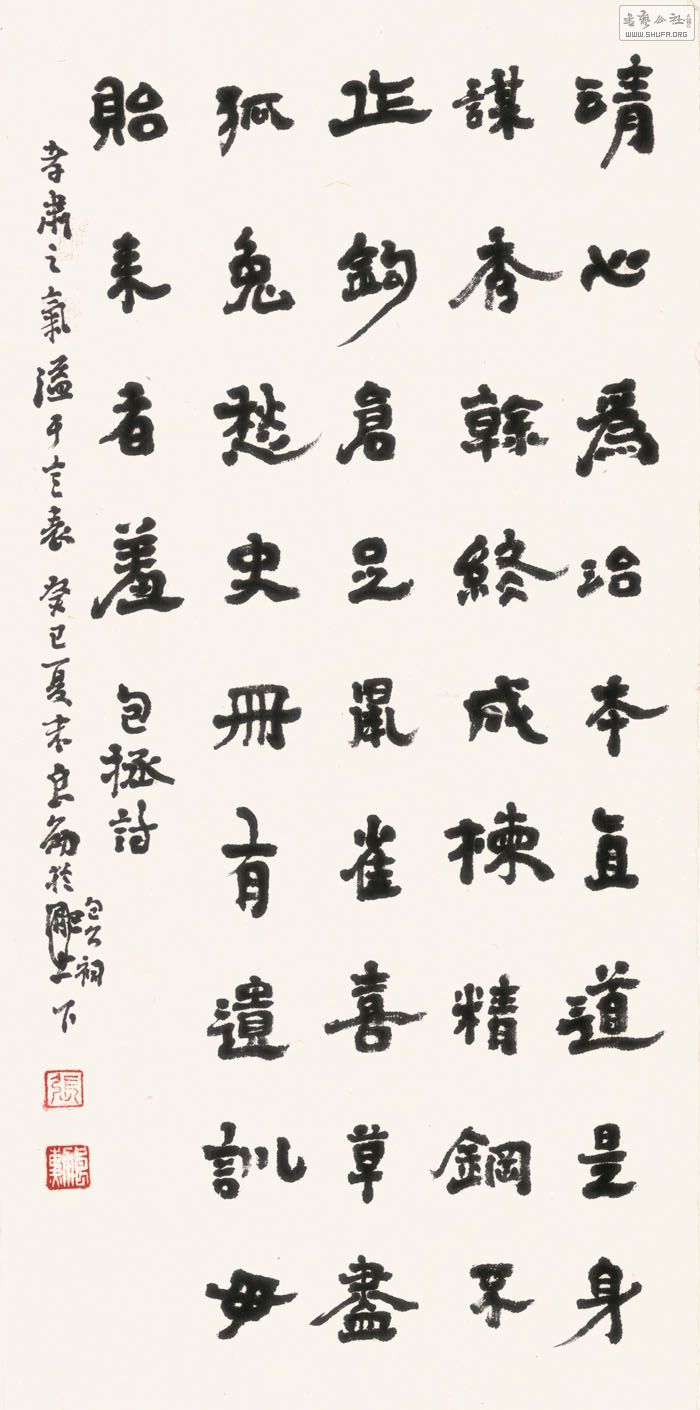 清心為治本直道是身
謀秀幹終成棟精鋼不
作鈎倉足鼠雀喜草盡
狐兔愁史冊有遺訓毋
貽來者羞 包拯詩
孝肅之氣溢于言表 癸巳夏末良勛於肥土下
包公祠
張
書藝公社
WWW.SHUFA.ORG